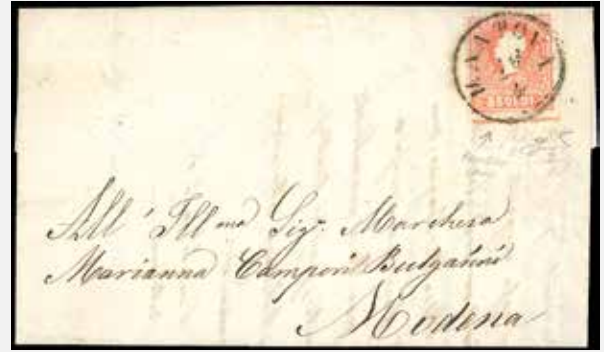 MANTOVA
5 SOLDI
All' Ill ma Sigra Marchesa
Marianna Campori Bulgarini
Modena